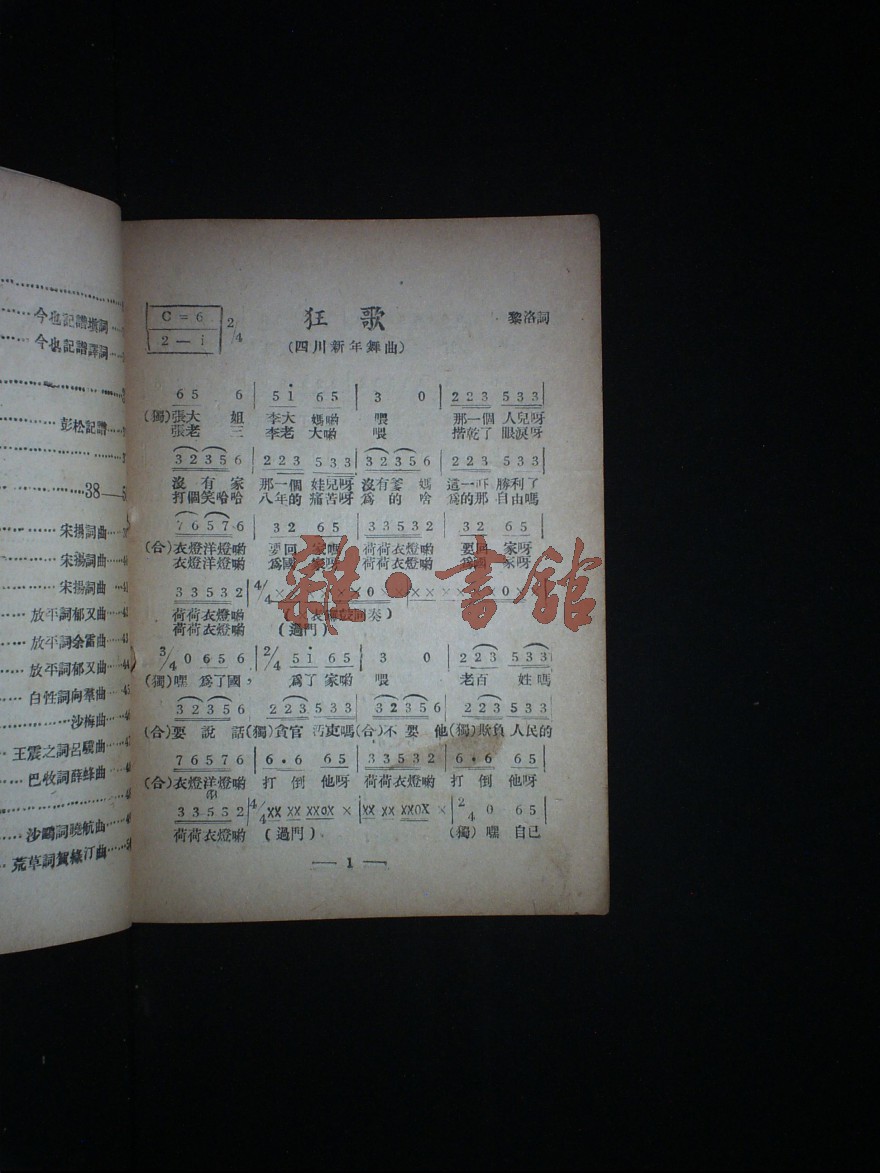 今也記譜填詞
今也記譜譯詞
彭松記譜
38—5
宋揚詞曲
宋揚詞曲
宋揚詞曲
放平詞郁又曲
放平詞余雷曲
放平詞郁又曲
白性詞向羣曲
沙梅曲
王震之詞呂驥曲
巴牧詞薛鋒曲
沙鷗詞曉航曲
荒草詞賀綠汀曲
C = 6
2 — i
2/4
狂歌
黎洛詞
(四川新年舞曲)
6 5 6 | 5 i 6 5 | 3 0 | 2 2 3 5 3 3 |
(獨)張大 姐 李大 媽喲 喂 那一個 人兒呀
張老 三 李老 大喲 喂 揩乾了 眼淚呀
3 2 3 5 6 | 2 2 3 5 3 3 | 3 2 3 5 6 | 2 2 3 5 3 3 |
沒有家 那一個 娃兒呀 沒有爹 媽 這一吓 勝利了
打個笑哈哈 八年的 痛苦呀 爲的啥 爲的那 自由嗎
7 6 5 7 6 | 3 2 6 5 | 3 3 5 3 2 | 3 2 6 5 |
(合)衣燈洋燈喲 要回 家嗎 荷荷衣燈喲 要回 家呀
衣燈洋燈喲 爲國 家呀 荷荷衣燈喲 爲國 家呀
3 3 5 3 2 | 4/4
荷荷衣燈喲
荷荷衣燈喲 (過門)
雜·書館
3/4 0 6 5 6 | 2/4 5 i 6 5 | 3 0 | 2 2 3 5 3 3 |
(獨)嘿 爲了國， 爲了 家喲 喂 老百 姓嗎
3 2 3 5 6 | 2 2 3 5 3 3 | 3 2 3 5 6 | 2 2 3 5 3 3 |
(合)要說話(獨)貪官 污吏嗎(合)不要 他(獨)欺負 人民的
7 6 5 7 6 | 6 . 6 6 5 | 3 3 5 3 2 | 6 . 6 6 5 |
(合)衣燈洋燈喲 打倒 他呀 荷荷衣燈喲 打倒 他呀
3 3 5 5 2 | 4/4 XX XX XXOX × | XX XX XXOX × | 2/4 0 6 5 |
荷荷衣燈喲 (過門) (獨)嘿 自己
— 1 —